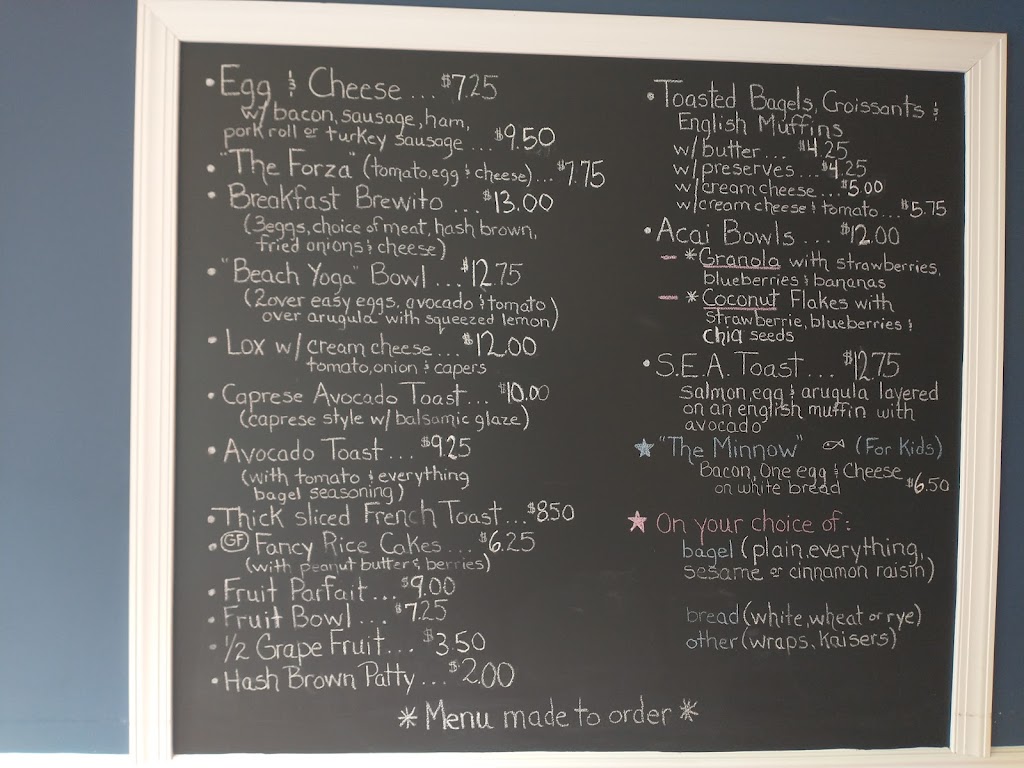 • Egg & Cheese ... $7.25
w/ bacon, sausage, ham,
pork roll or turkey sausage ... $9.50
• "The Forza" (tomato, egg & cheese) ... $7.75
• Breakfast Brewito .... $13.00
(3eggs, choice of meat, hash brown,
fried onions & cheese)
• "Beach Yoga" Bowl ... $12.75
(2 over easy eggs, avocado & tomato
over arugula with squeezed lemon)
• Lox w/ cream cheese ... $12.00
tomato, onion & capers
• Caprese Avocado Toast... $10.00
(caprese style w/ balsamic glaze)
• Avocado Toast ... $9.25
(with tomato & everything
bagel seasoning)
• Thick sliced French Toast... $8.50
• GF Fancy Rice Cakes.... $6.25
(with peanut butter & berries)
• Fruit Parfait ... $9.00
• Fruit Bowl ... $7.25
• 1/2 Grape Fruit.... $3.50
• Hash Brown Patty ... $2.00
• Toasted Bagels, Croissants &
English Muffins
w/ butter ... $4.25
w/ preserves ... $4.25
w/ cream cheese ... $5.00
w/ cream cheese & tomato ... $5.75
• Acai Bowls ... $12.00
- * Granola with strawberries,
blueberries & bananas
- * Coconut Flakes with
strawberrie, blueberries &
chia seeds
• S.E.A. Toast ... $12.75
salmon, egg & arugula layered
on an english muffin with
avocado
★ "The Minnow" (For Kids)
Bacon, One egg & Cheese
on white bread $6.50
★ On your choice of:
bagel (plain, everything,
sesame or cinnamon raisin)
bread (white, wheat or rye)
other (wraps, Kaisers)
* Menu made to order *